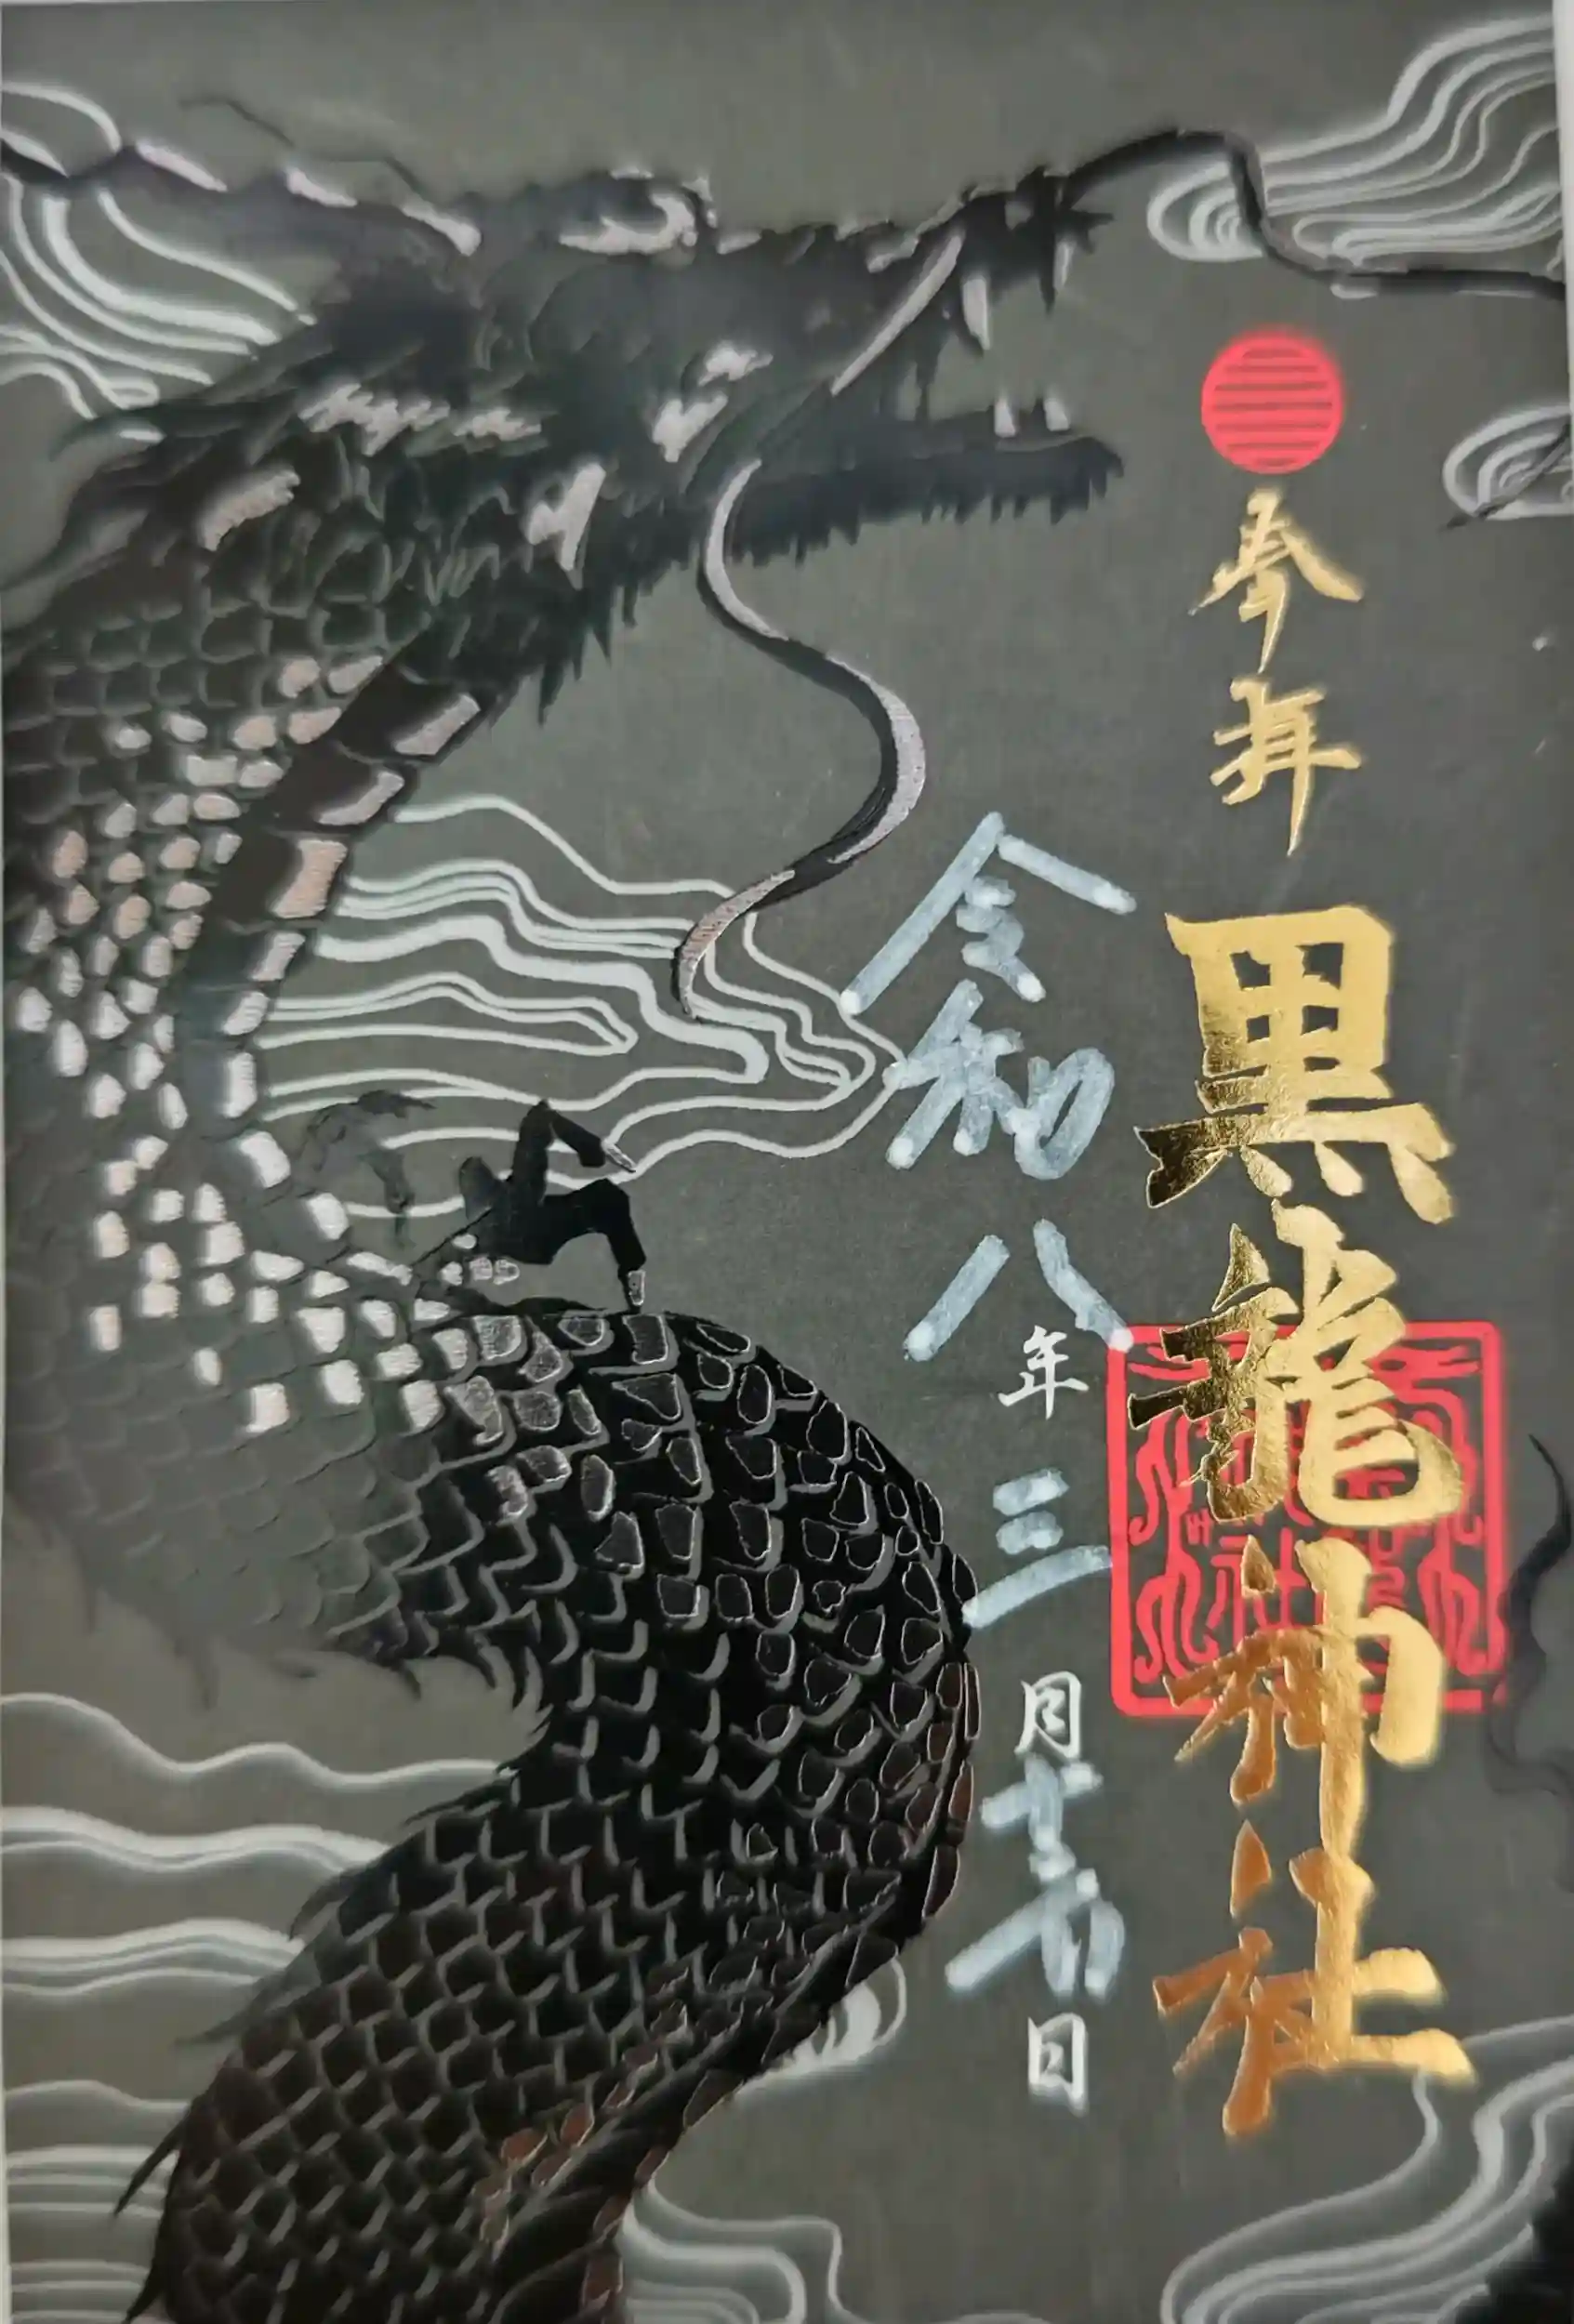 奉拝
黒龍神社
令和八年三月十五日